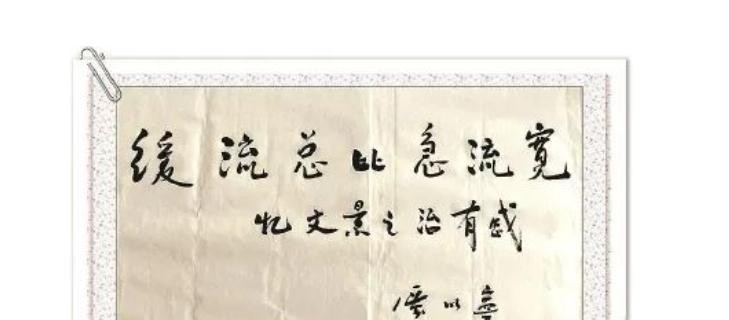 寬流急比总流缓
感有治之景文忆